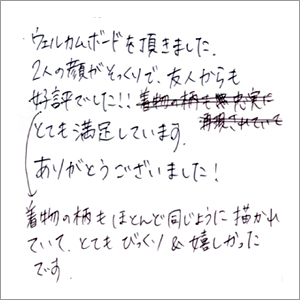 ウェルカムボードを頂きました。
2人の顔がそっくりで、友人からも
好評でした!! 着物の柄も無 忠実に
再現されていて
とても満足しています。
ありがとうございました!
着物の柄もほとんど同じように描かれ
ていて、とてもびっくり&嬉しかった
です。